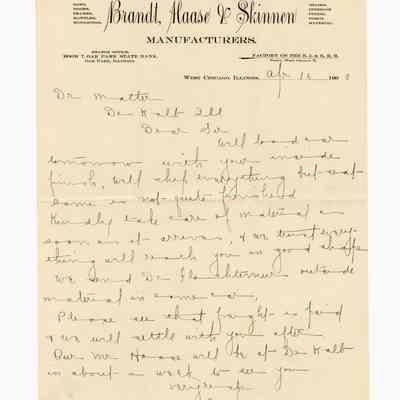 Brandt, Haase & Skinner
MANUFACTURERS.
SASH,
DOORS,
FRAMES,
MANTELS,
STAIRS,
INTERIOR
FINISH,
PORCH
MATERIAL.
BRANCH OFFICE,
ROOM 7, OAK PARK STATE BANK,
OAK PARK, ILLINOIS
FACTORY ON THE
WEST CHICAGO, ILLINOIS, Apr 16 190
Dr Matter
De Kalb Ill
Dear Sir
Will load car
tomorrow with your inside
finish, will ship everything but
some is not quite finished
Kindly take care of material as
soon as it arrives, & we trust every-
thing will reach you in good shape
We send Dr outside
material in same car,
Please see that freight is paid
& we will settle with you after
Our Mr Haase will be at De Kalb
in about a week to see you